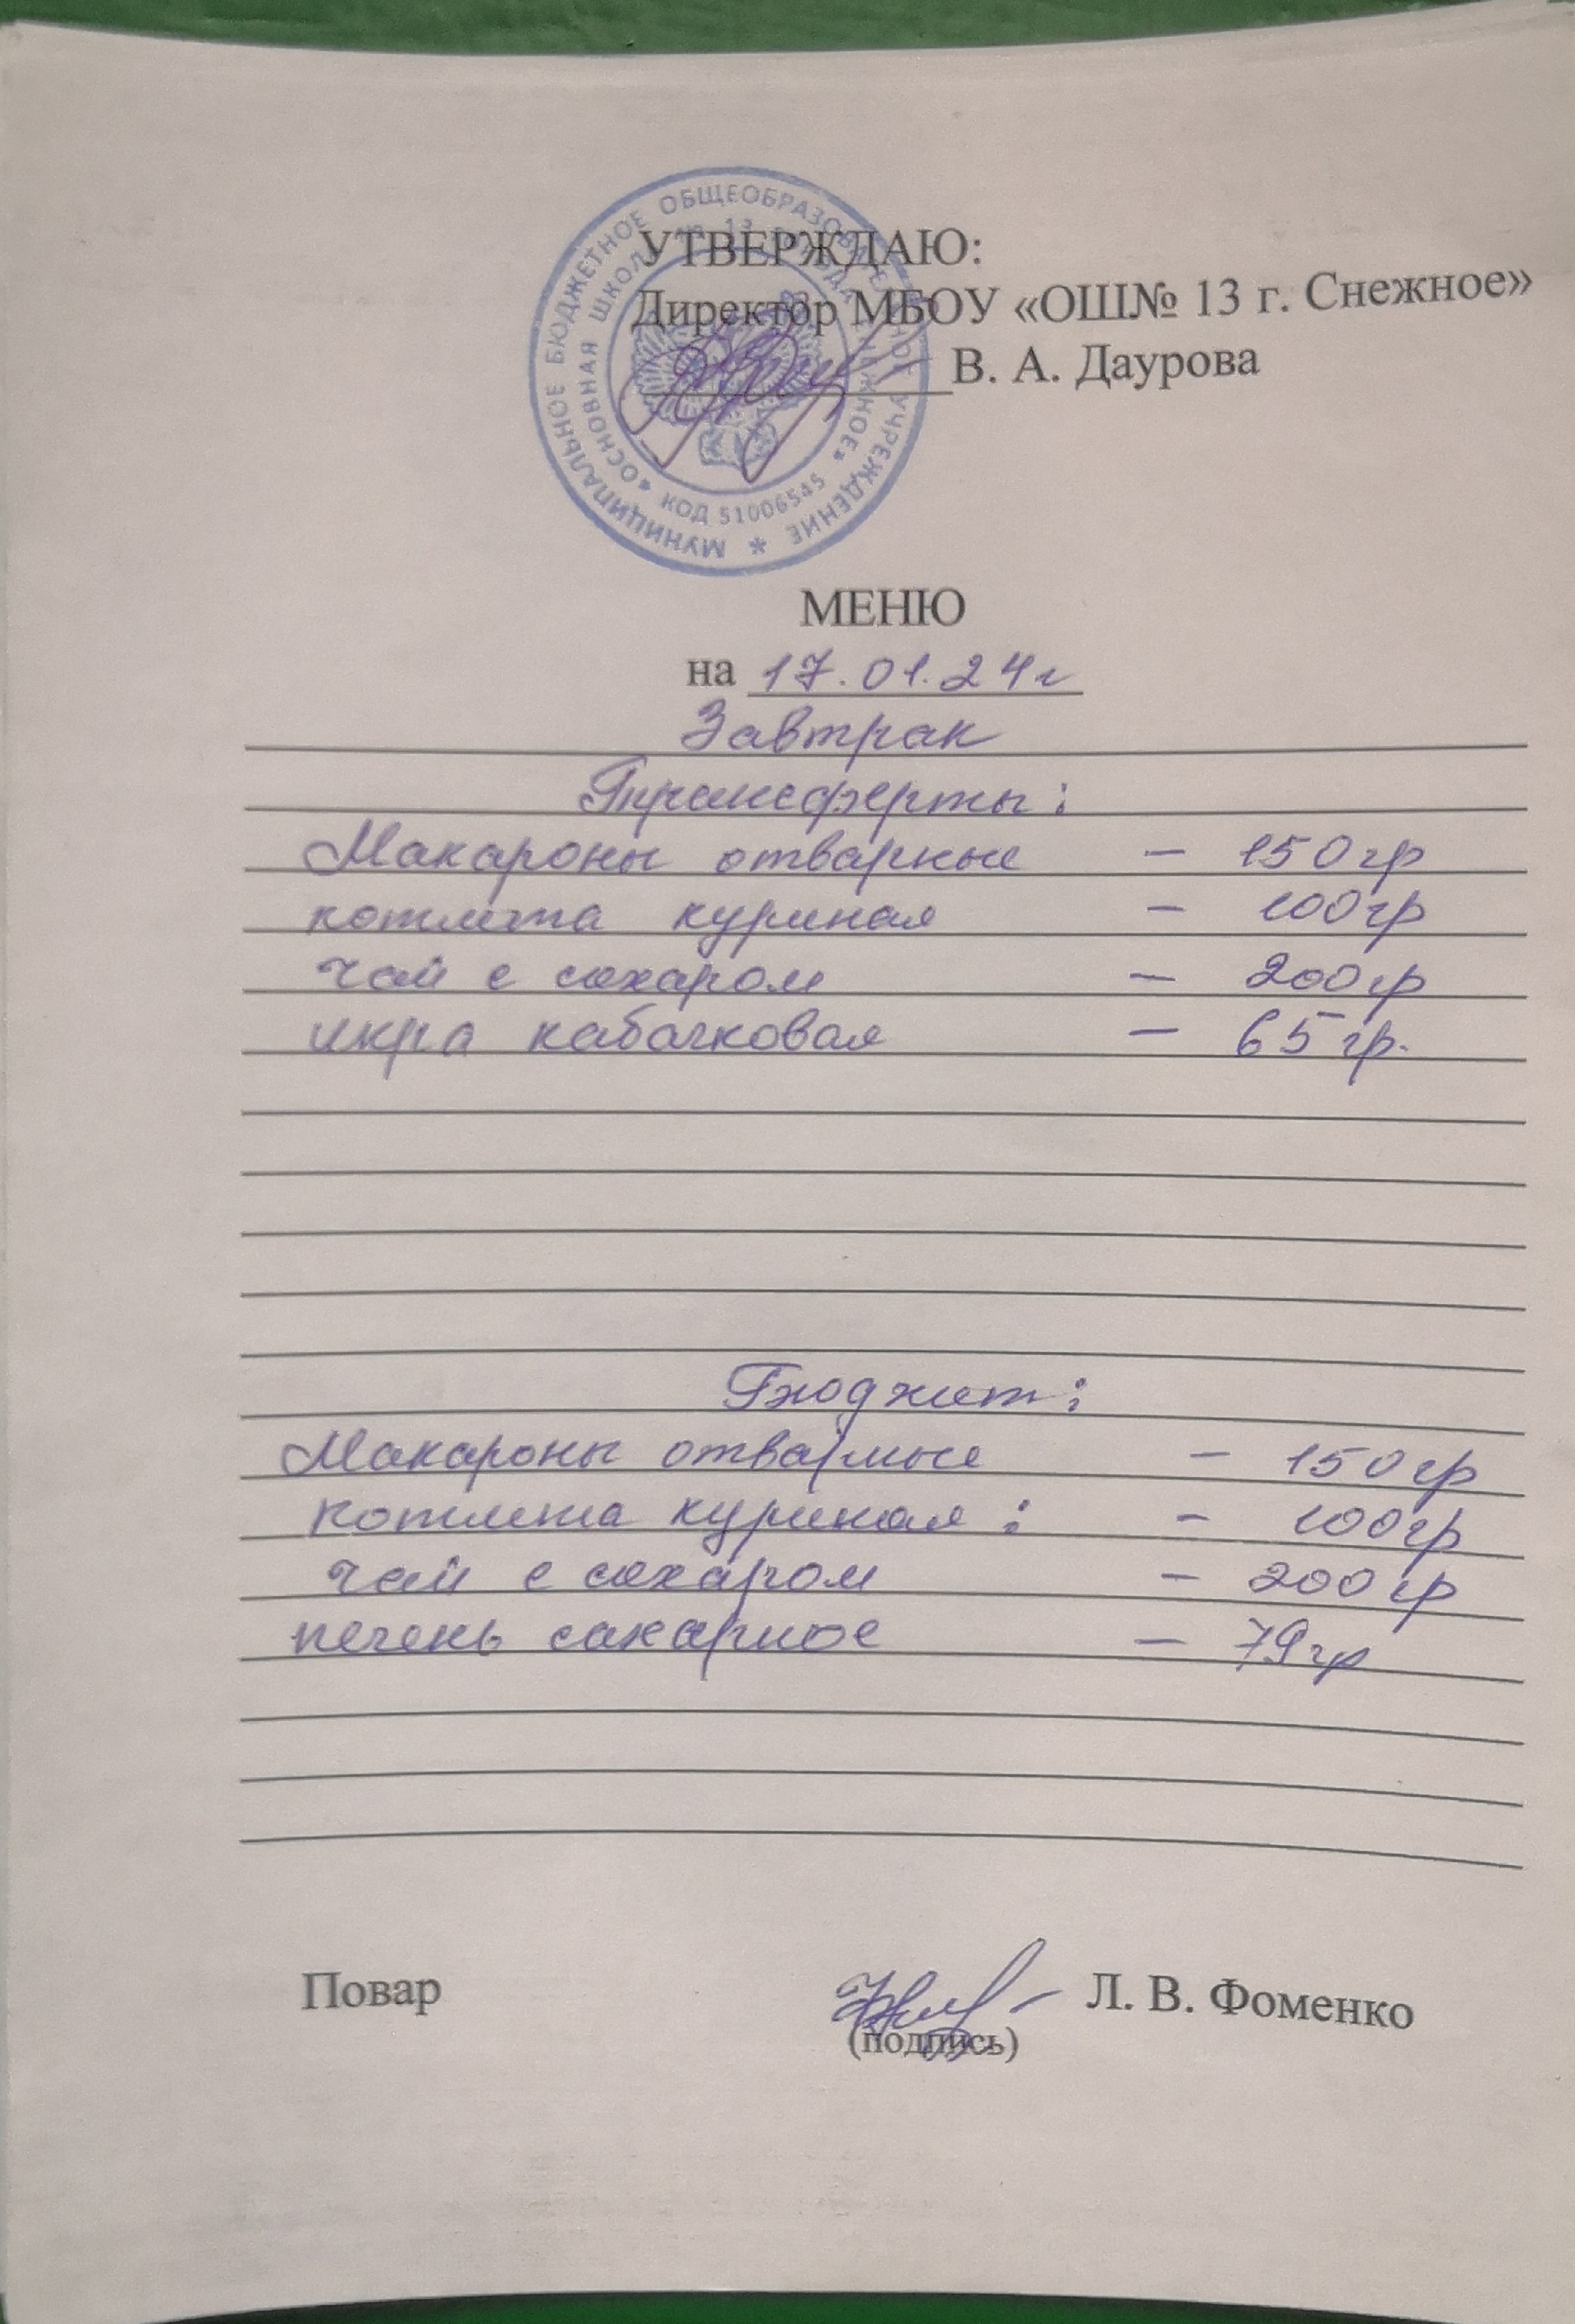 УТВЕРЖДАЮ:
Директор МБОУ «ОШ№ 13 г. Снежное»
В. А. Даурова
МУНИЦИПАЛЬНОЕ БЮДЖЕТНОЕ ОБЩЕОБРАЗОВАТЕЛЬНОЕ УЧРЕЖДЕНИЕ *
«ОСНОВНАЯ ШКОЛА № 13 ГОРОДА СНЕЖНОЕ»
КОД 51006545
МЕНЮ
на 17.01.24г
Завтрак
Трансферты:
Макароны отварные - 150гр
котлета куриная - 100гр
чай с сахаром - 200гр
икра кабачковая - 65гр.
Бюджет:
Макароны отварные - 150гр
котлета куриная : - 100гр
чай с сахаром - 200гр
печень сахарное - 79гр
Повар Л. В. Фоменко
(подпись)